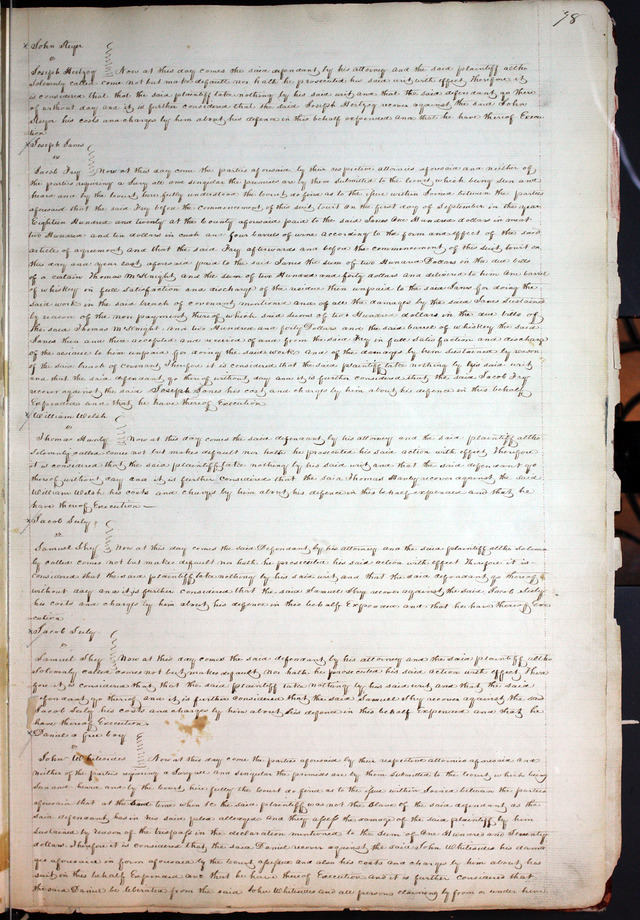 78
John Reyer
vs
Joseph Hertzog Now at this day comes the said defendant by his attorney and the said plaintiff altho
Solemnly called come not but make default nor hath he prosecuted his said suit with effect Therefore it
is considered that the said plaintiff take nothing by his said writ and that the said defendant go there
of without day and it is further considered that the said Joseph Hertzog recover against the said John
Reyer his costs and charges by him about his defence in this behalf expended and that he have thereof Exe
tion
Joseph Janes
vs
Jacob Fry Now at this day come the parties aforesaid by their respective attornies aforesaid and neither of
the parties requiring a Jury all and singular the premises are by them submitted to the Court, which being seen and
heard and by the Court here fully understood the Court do find as to the issue within Joined between the parties
aforesaid that the said Fry before the commencement of this suit, to wit on the first day of September in the year
Eighteen Hundred and twenty at the County aforesaid paid to the said Janes One Hundred dollars in
two Hundred and ten dollars in cash and four barrels of according to the form and effect of the said
article of agreement and that the said Fry afterwards and before the commencement of this suit, to wit on
the day and year last aforesaid paid to the said Janes the sum of two Hundred Dollars in the due bills
of a certain Thomas McKnight and the sum of two Hundred and forty dollars and delivered to him One barrel
of whiskey in full Satisfaction and discharge of the residue then unpaid to the said Janes for doing the
said work in the said breach of covenant mentioned and of all the damages by the said Janes Sustained
by reason of the non payment thereof which said sums of two Hundred dollars in the due bills of
the said Thomas McKnight and two Hundred and forty Dollars and the said barrel of whiskey the said
Janes then and there accepted and received of and from the said Fry in full Satisfaction and discharge
of the residue to him unpaid for doing the said work and of the damages by him Sustained by reason
of the said breach of covenant Therefore it is considered that the said plaintiff take nothing by his said writ
and that the said defendant go thereof without day and it is further considered that the said Jacob Fry
recover against the said Joseph Janes his costs and charges by him about his defence in this behalf
Expended and that he have thereof Execution
William Welsh
vs
Thomas Hanly Now at this day comes the said defendant by his attorney and the said plaintiff altho
Solemnly called comes not but makes default nor hath he prosecuted his said action with effect Therefore
it is considered that the said plaintiff take nothing by his said writ and that the said defendant go
thereof without day and it is further considered that the said Thomas Hanly recover against the said
William Welsh his costs and charges by him about his defence in this behalf expended and that he
have thereof Execution
Jacob Seely
vs
Samuel Shey Now at this day comes the said Defendant by his attorney and the said plaintiff altho Solemn
ly called comes not but make default nor hath he prosecuted his said action with effect Therefore it is
considered that the said plaintiff take nothing by his said writ and that the said defendant go thereof
without day and it is further considered that the said Samuel Shey recover against the said Jacob Seely
his costs and charges by him about his defence in this behalf Expended and that he have thereof Exe
cution
Jacob Seely
vs
Samuel Shey Now at this day comes the said defendant by his attorney and the said plaintiff altho
Solemnly called comes not but makes default nor hath he prosecuted his said action with effect There
fore it is considered that the said plaintiff take nothing by his said writ and that the said
defendant go thereof and it is further considered that the said Samuel Shey recover against the said
Jacob Seely his costs and charges by him about his defence in this behalf Expended and that he
have thereof Execution
Daniel a free boy
vs
John Whitesides Now at this day come the parties aforesaid by their respective attornies aforesaid and
neither of the parties requiring a Jury all and singular the premises are by them submitted to the Court, which being
Seen and heard and by the Court here fully the Court do find as to the issue within Joined between the parties
aforesaid that at the time when &c the said plaintiff was not the Slave of the said defendant as the
said defendant has in his said pleas alledged and they assess the damage of the said plaintiff by him
Sustained by reason of the trespass in the declaration mentioned to the Sum of One Hundred and Seventy
dollars. Therefore it is considered that the said Daniel recover against the said John Whitesides his dama
ges aforesaid in form aforesaid by the Court assessed and also his costs and charges by him about his
suit in this behalf Expended and that he have thereof Execution and it is further considered that
the said Daniel be liberated from the said John Whitesides and all persons claiming by from or under him